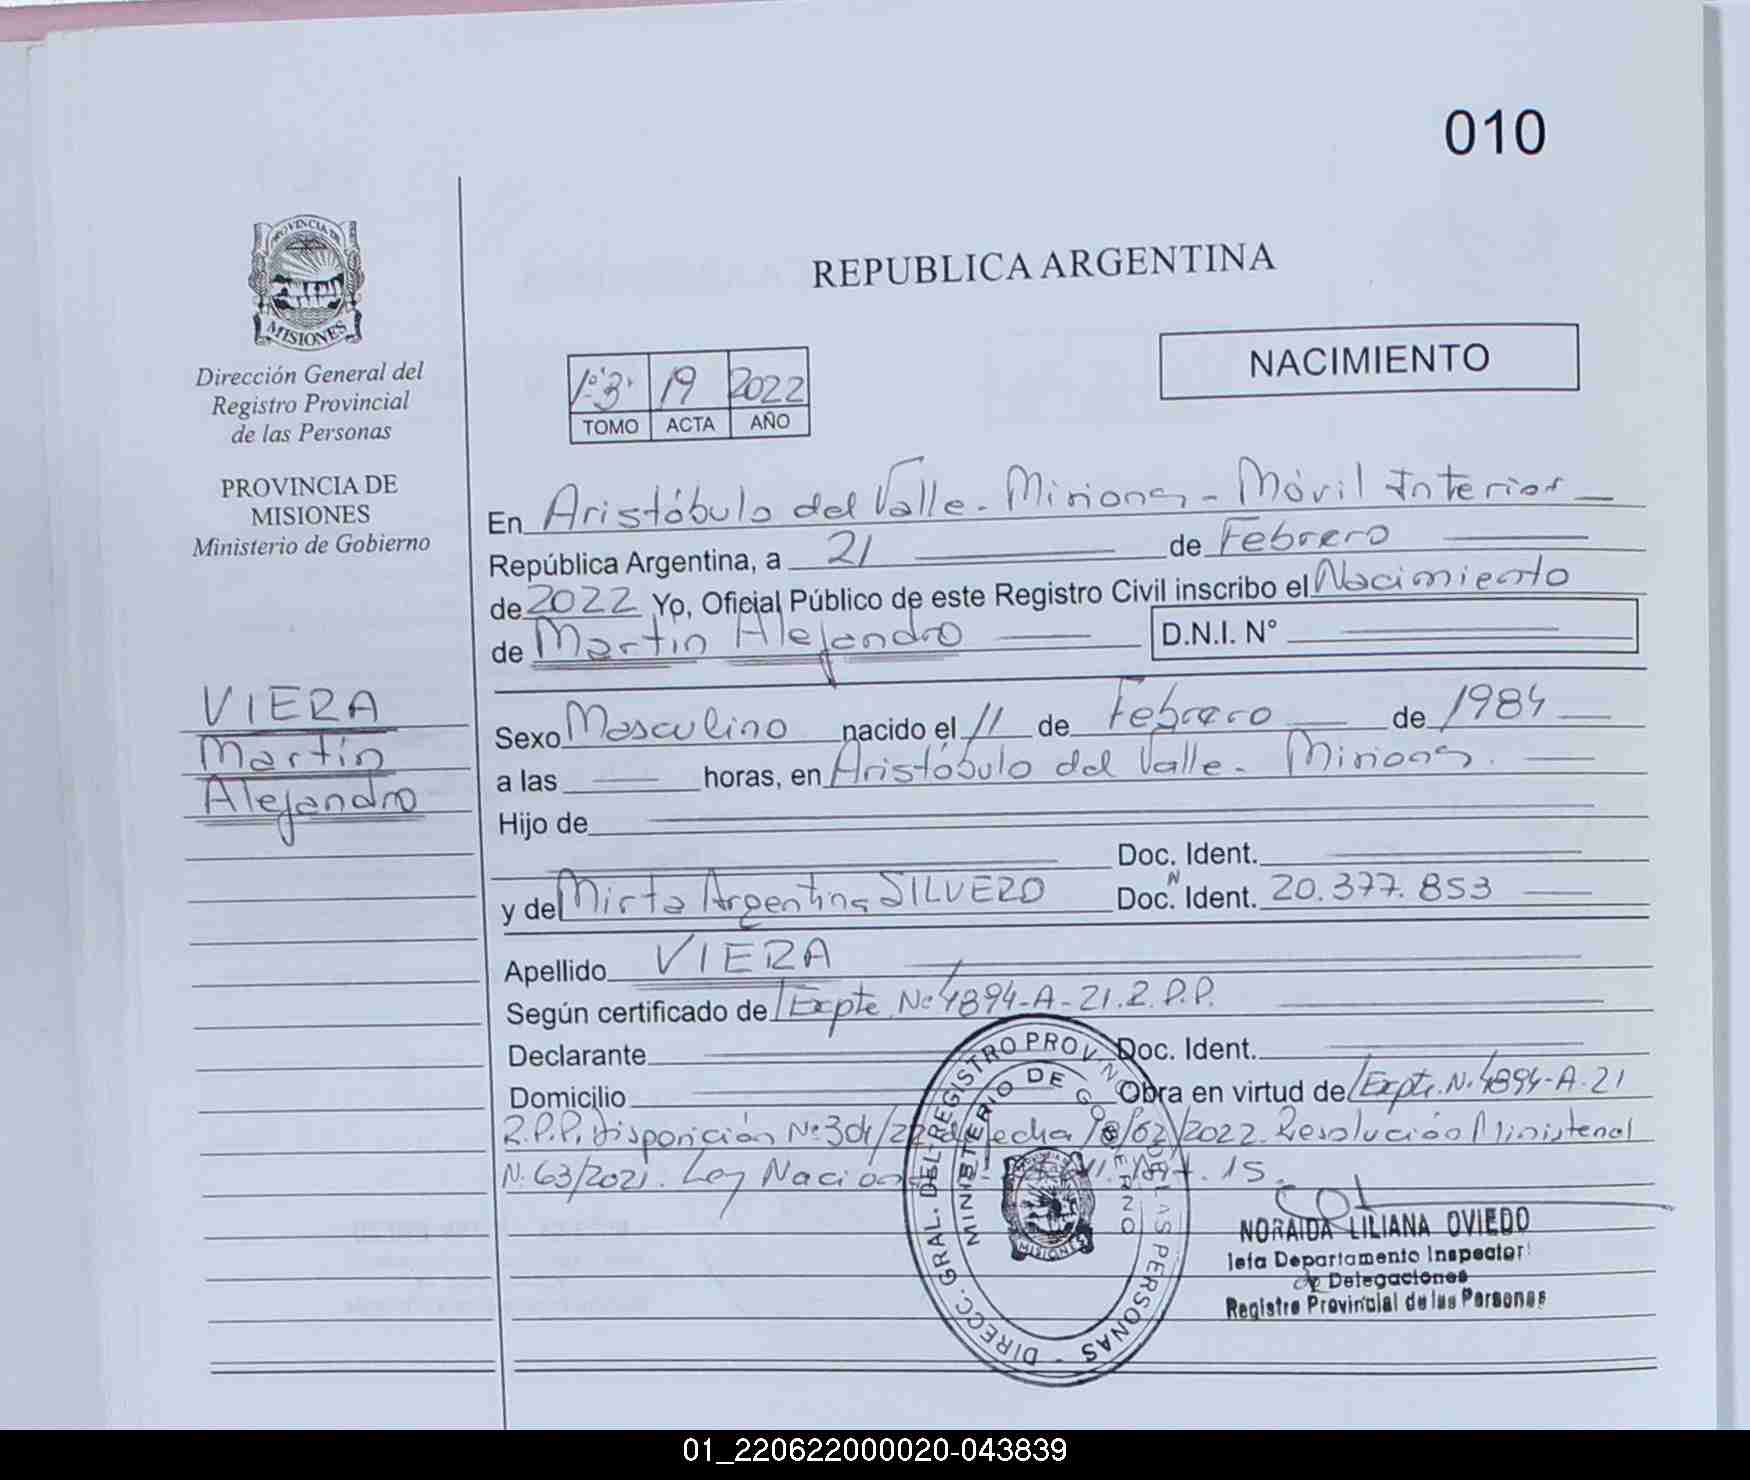 010
PROVINCIA DE
MISIONES
Dirección General del
Registro Provincial
de las Personas
PROVINCIA DE
MISIONES
Ministerio de Gobierno
VIERA
Martín
Alejandro
REPUBLICA ARGENTINA
NACIMIENTO
1º 3. 19 2022
TOMO ACTA AÑO
En Aristóbulo del Valle - Misiones - Móvil Interior
República Argentina, a 21 de Febrero
de 2022 Yo, Oficial Público de este Registro Civil inscribo el Nacimiento
de Martin Alejandro D.N.I. N°
Sexo Masculino nacido el 11 de Febrero de 1984
a las horas, en Aristóbulo del Valle - Misiones.
Hijo de
Doc. Ident.
y de Mirta Argentina SILVERO Doc. N Ident. 20.377.853
Apellido VIERA
Según certificado de Expte Nº 4894-A-21. R.P.P.
Declarante Doc. Ident.
Domicilio Obra en virtud de Expte. Nº 4894-A-21
R.P.P. Disposición Nº 304/22 de fecha /02/2022. Resolución Ministerial
N. 63/2021. Ley Art. 15.
DIRECC. GRAL. DEL REGISTRO PROV. DE LAS PERSONAS -
MINISTERIO DE GOBIERNO
MISIONES
NORAIDA LILIANA OVIEDO
Jefa Departamento Inspector
de Delegaciones
Registro Provincial de las Personas
01_220622000020-043839